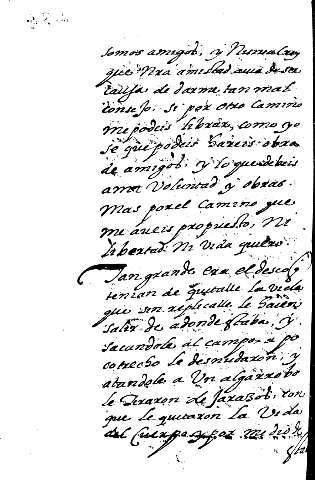 somos amigos, y Nunca Crey
que Nra amistad avia de ser
causa de darme tan mal
consejo. si por otro Camino
me podeis librar, como yo
se que podeis Hareis obra
de amigos. y lo que debeis
a mi Voluntad y obras.
Mas por el Camino que
me aveis propuesto, Ni
libertad Ni Vida quiero.
Tan grande era el deseo q
tenian de quitalle la vida
que sin replicalle le Hacen
salir de adonde estaba, y
sacandole al campo a po
co trecho le desnudaron, y
atandole a Un algarrobo
le tiraron de Jarazos, con
que le quitaron la Vida
del Cuerpo y por medio de